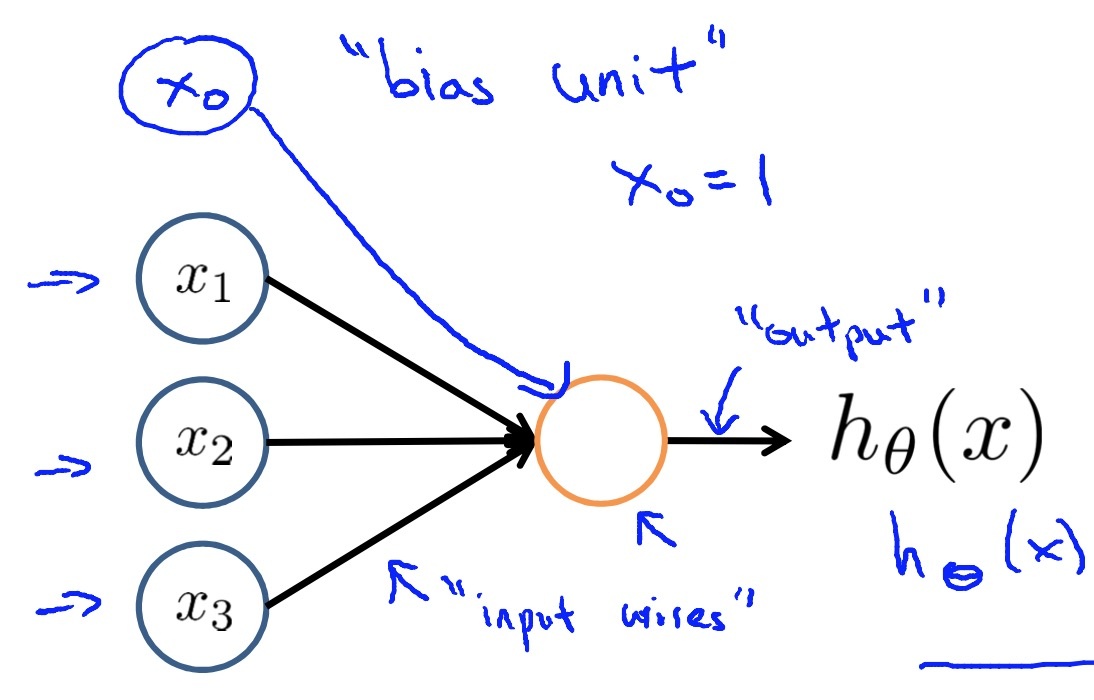 x₀ "bias unit"
x₀ = 1
x₁
"output"
x₂
h_θ(x)
h_θ(x)
x₃
"input wires"